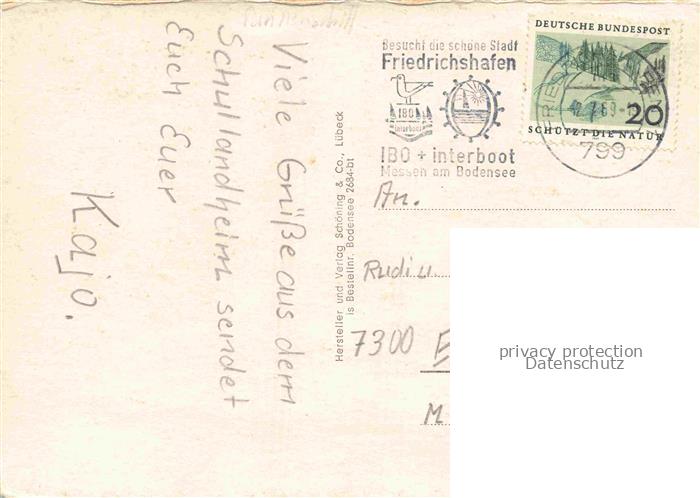 Viele Grüße aus dem
Schullandheim sendet
Euch Euer
Kajo.
Hersteller und Verlag Schöning & Co., Lübeck
is Bestellnr. Bodensee 2684-bt
Besucht die schöne Stadt
Friedrichshafen
IBO
interboot
IBO + interboot
Messen am Bodensee
DEUTSCHE BUNDESPOST
20
SCHÜTZT DIE NATUR
799
An.
Rudi u.
7300 E
M
privacy protection
Datenschutz